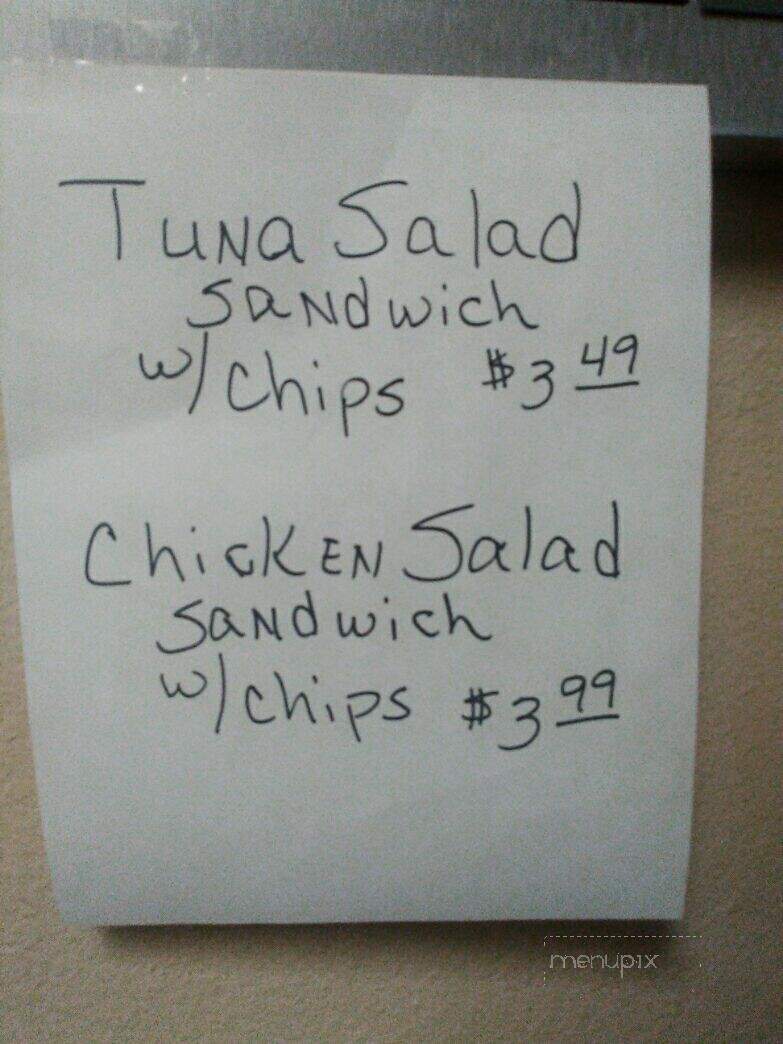 Tuna Salad
Sandwich
w/ Chips $3 49
Chicken Salad
Sandwich
w/ chips $3 99
menupix